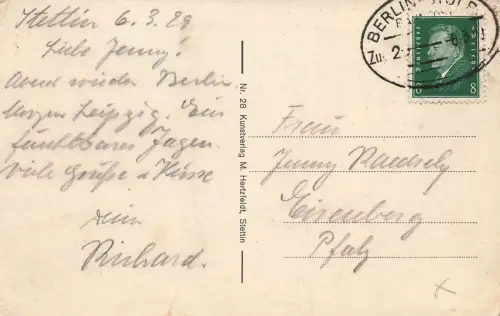 Stettin 6.3.29
Liebe Jenny!
Abend wieder Berlin
Morgen Leipzig. Ein
furchtbares Jagen.
Viele Grüße u Küsse
Dein
Richard.
Nr. 28 Kunstverlag M. Hertzfeldt, Stettin
BERLIN-
Zug 2
8 8
Frau
Jenny
Eisenberg
Pfalz